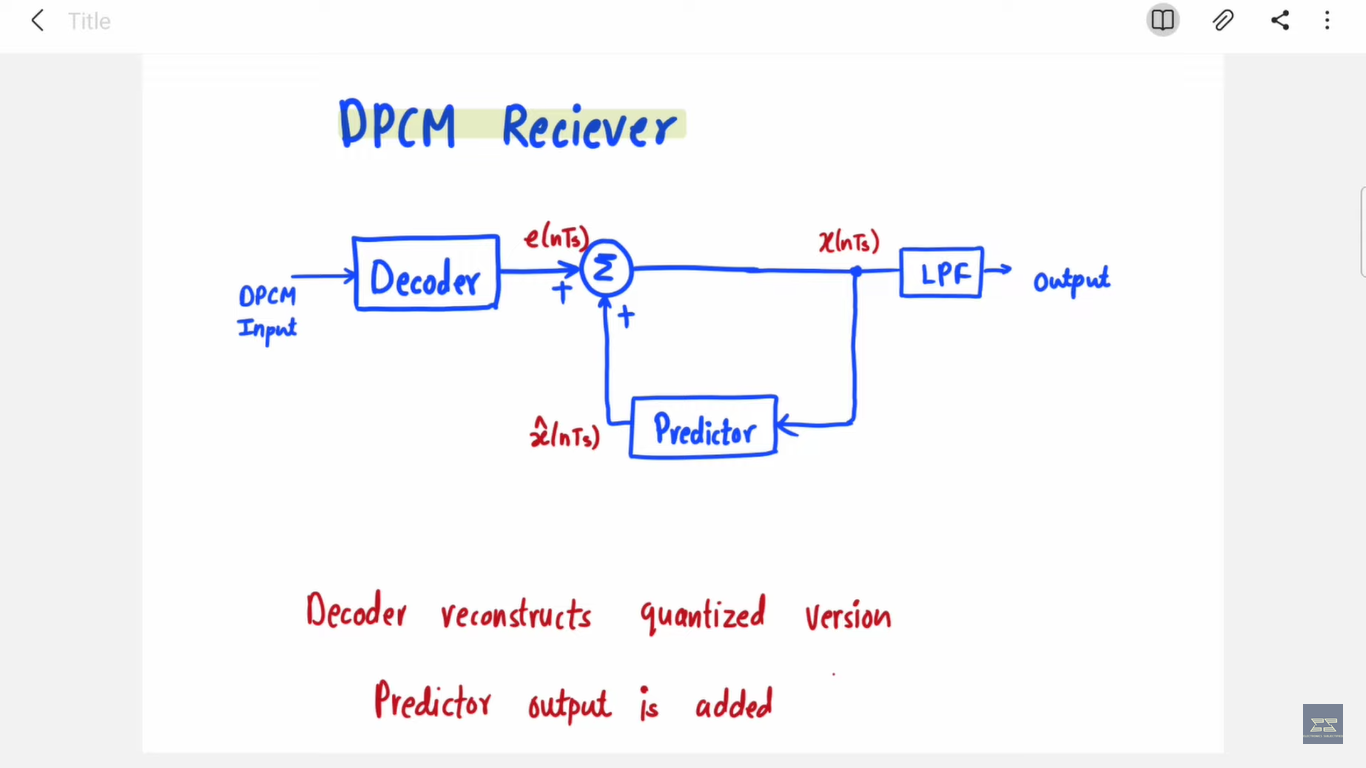 Title
DPCM Reciever
e(nTs)
x(nTs)
Σ
Decoder
LPF
Output
DPCM
Input
+
+
x̂(nTs)
Predictor
Decoder reconstructs quantized version
Predictor output is added